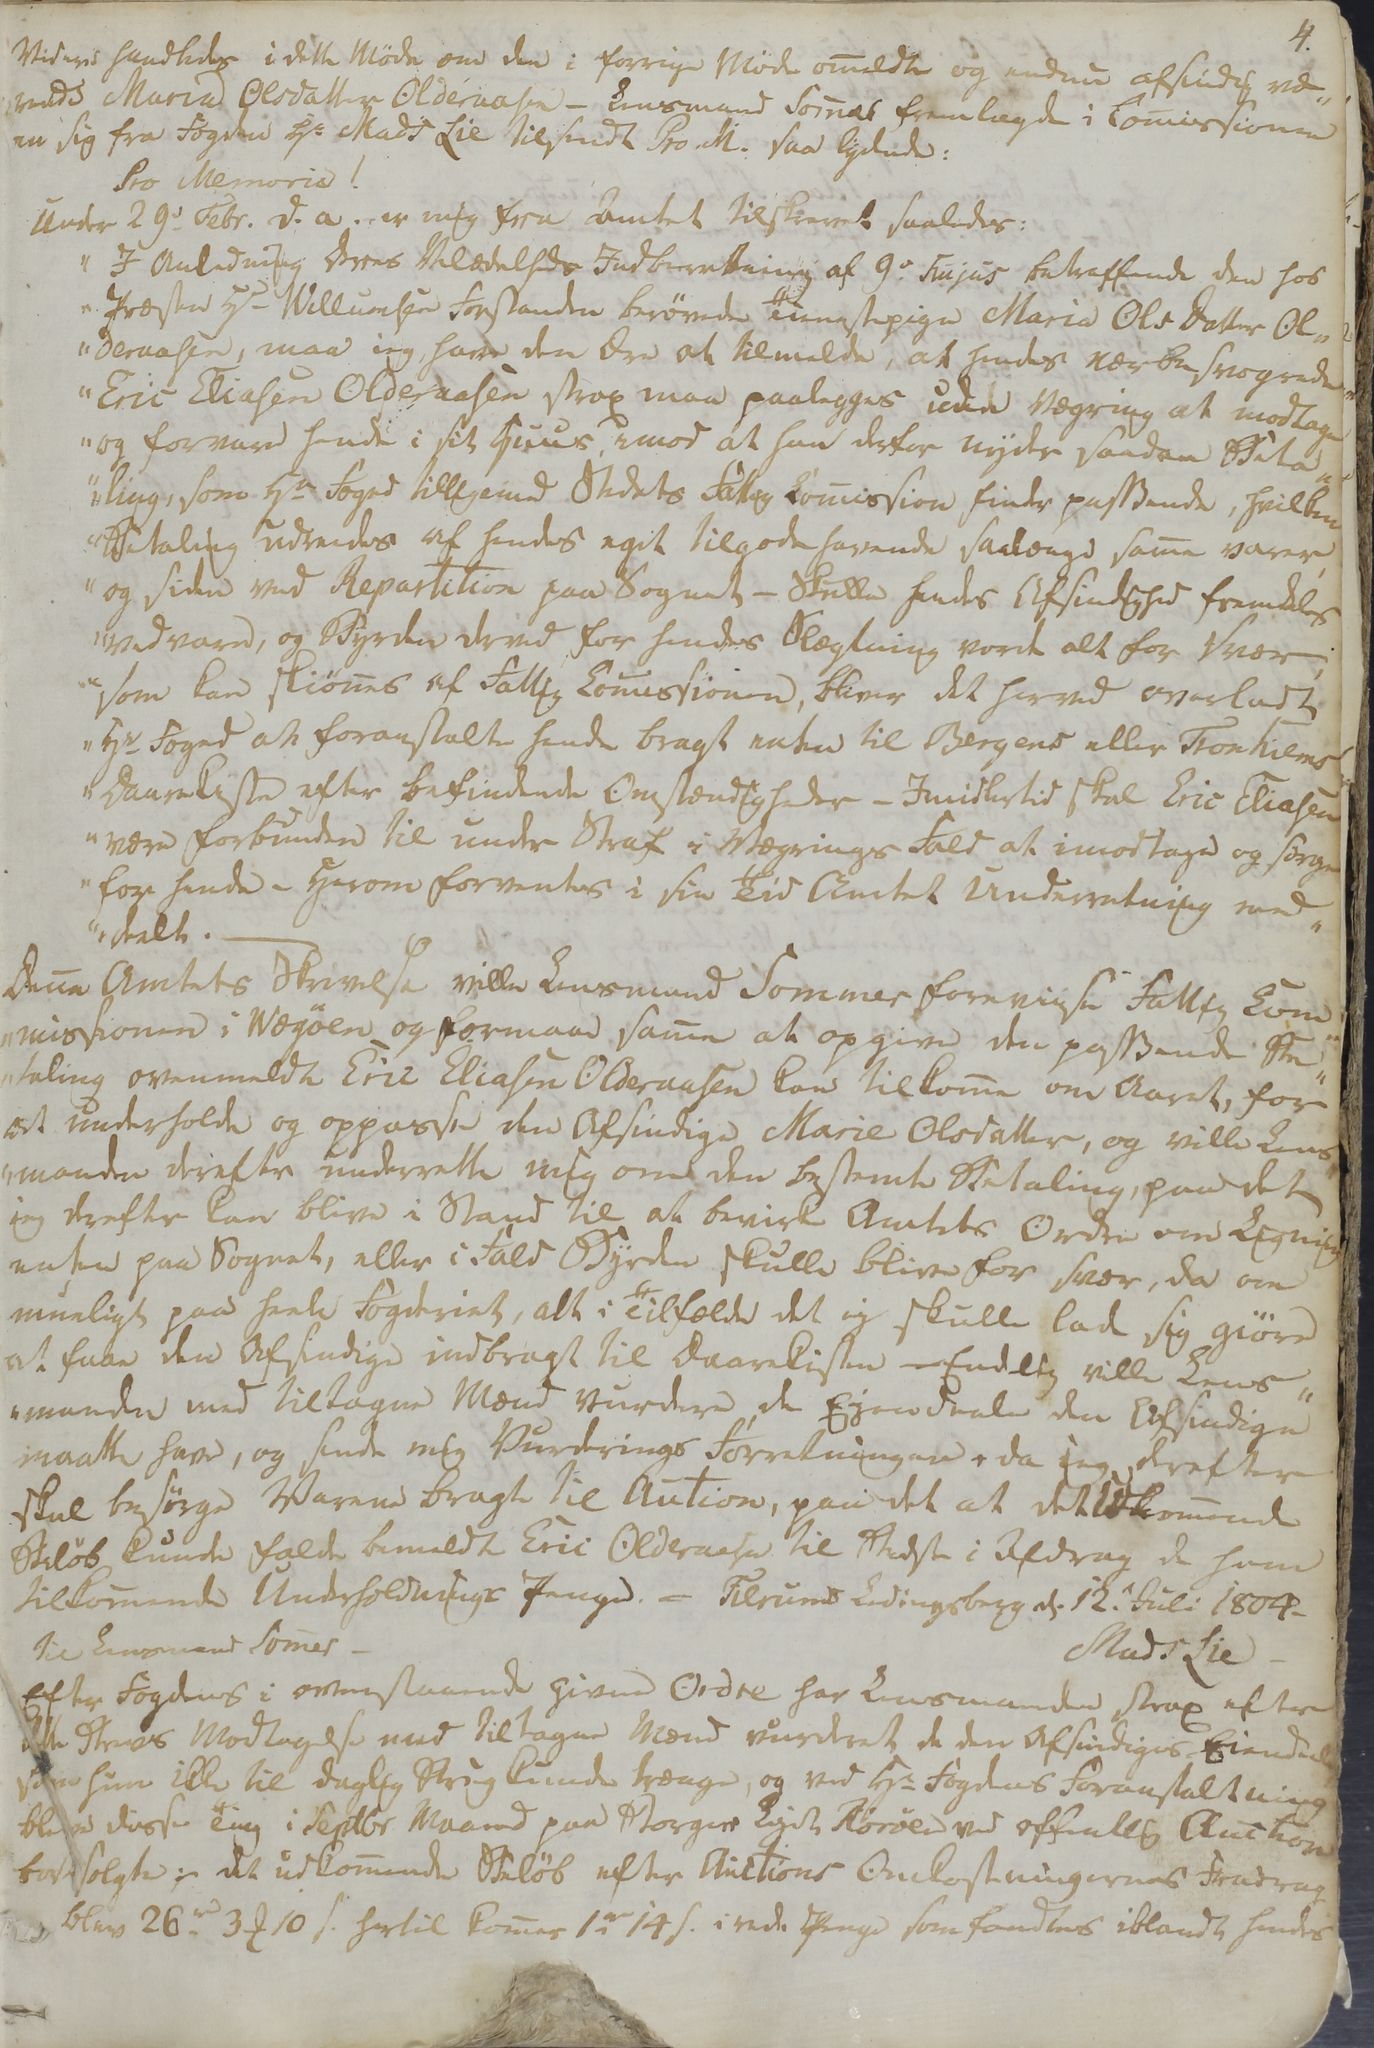 4.
Videre handledes i dette Møde om den i forrige Møde om̅eldte og endnu afsindig væ„
rende Maria Olsdatter Olderaasen – Lensmand Som̅er fremlagde i Com̅issionen
en sig fra Fogden Hr Mads Lie tilsendt Pro M. saa lydende:
Pro Memoria!
Under 29d Febr. d. a. er mig fra Amtet tilskrevet saaledes:
„ I Anledning Deres Velædelheds Indberetning af 9de hujus betreffende den hos
„ Præsten Hr Willumsen Forstanden berøvede Tienestepige Maria Ols Datter Ol„
„deraasen, maa ieg have den Ære at tilmelde, at hendes nærbesvogrede
„ Eric Eliasen Olderaasen strax maa paalegges uden Vegring at modtage
„ og forvare hende i sit Huus, imod at han derfor nyder saadan Beta„
„ling, som Hr Foged tilligemed Stedets Fattig Com̅ission finder passende, hvilken
„ Betaling udredes af hendes eget tilgodehavende saalænge sam̅e varer,
„ og siden ved Repartition paa Sognet – Skulle hendes Afsindighed fremdeles
„ vedvare, og Byrden derved for hendes Slægtning vorde alt for svær,
„ som kan skiøn̅es af Fattig Com̅issionen, bliver det herved overladt
„ Hr Foged at foranstalte hende bragt enten til Bergens eller Tronhiems
„ Daarekiste efter befindende Omstændigheder – Imidlertid skal Eric Eliasen
„ være forbunden til under Straf i Vægrings Fald at imodtage og sørge
„ for hende – Herom forventes i sin Tid Amtet Underretning med„
„deelt.
Den̅e Amtets Skrivelse ville Lensmand Sommer foreviise Fattig Com„
„missionen i Wegøen og formaae sam̅e at opgive den passende Be„
„taling ovenmeldte Eric Eliasen Olderaasen kan tilkom̅e om Aaret, for
at underholde og oppasse den Afsindige Marie Olsdatter, og ville Lens„
„manden derefter underrette mig om den bestemte Betaling, paa det
ieg derefter kan blive i Stand til at bevirke Amtets Ordre om Ligning
enten paa Sognet, eller i Fald Byrden skulle blive for svær, da om
mueligt paa heele Fogderiet, alt i Tilfælde det ei skulle lade sig giøre
at faae den Afsindige indbragt til Daarekisten – Endelig ville Lens„
„manden med tiltagne Mænd vurdere de Ejendeele den Afsindige
maatte have, og sende mig Vurderings Forretningen, da ieg derefter
skal besørge Varene bragte til Auction, paa det at det Udkom̅ende
Beløb kunde falde bemeldte Eric Olderaasen til Bedste i Afdrag de ham
tilkom̅ende Underholdnings Penge. – Tilrums Ledingsberg d. 12te Juli 1804 –
til Lensmand Som̅er –
Mads Lie –
Efter Fogdens i ovenstaaende givne Ordre har Lensmanden strax efter
dette Brevs Modtagelse med tiltagne Mænd vurderet de den Afsindiges Eiendeele
som hun ikke til daglig Brug kunde trænge, og ved Hr Fogdens Foranstaltning
bleve disse Ting i Septbr Maaned paa Borger Leyet Rørøen ved offentlig Auction
bortsolgte; det udkom̅ende Beløb efter Auctions Omkostningernes Fradrag
blev 26 rd 3 ℔ 10 s. hertil kom̅er 1 rd 14 s. i rede Penge som fandtes iblandt hendes